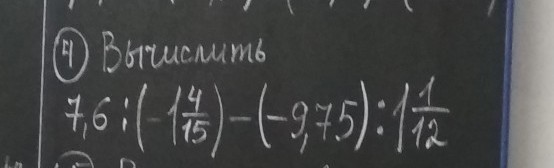 ④ Вычислить
7,6 : (-1 4/15) - (-9,75) : 1 1/12